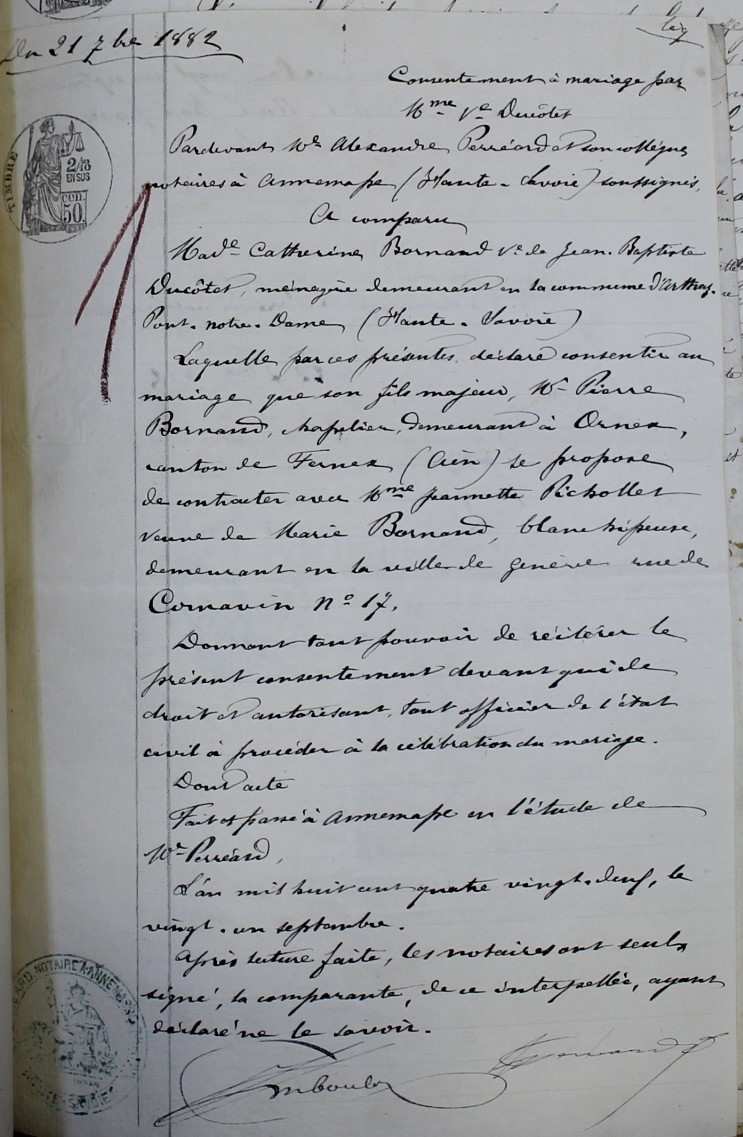 Du 21 7bre 1882
Consentement à mariage par
Mme Ve Ducôtet
Pardevant Me Alexandre Perréard et son collègue
notaires à Annemasse (Haute-Savoie) soussignés,
A comparu
Made Catherine Bornand Ve de Jean-Baptiste
Ducôtet, ménagère demeurant en la commune d'Arthaz-
Pont-notre-Dame (Haute-Savoie)
Laquelle par ces présentes, déclare consentir au
mariage que son fils majeur, Mr Pierre
Bornand, chapelier, demeurant à Ornex,
canton de Fernex (Ain) se propose
de contracter avec Mme Jeannette Pichollet
veuve de Marie Bornand, blanchisseuse,
demeurant en la ville de Genève rue de
Cornavin No 17.
Donnant tout pouvoir de réitérer le
présent consentement devant qui de
droit et autorisant, tout officier de l'état
civil à procéder à la célébration du mariage.
Dont acte
Fait et passé à Annemasse en l'étude de
Me Perréard,
L'an mil huit cent quatre vingt-deux, le
vingt-un septembre.
Après lecture faite, les notaires ont seuls
signé, la comparante, de ce interpellée, ayant
déclaré ne le savoir.
TIMBRE
2/10
EN SUS
50c.
NOTAIRE A ANNEMASSE